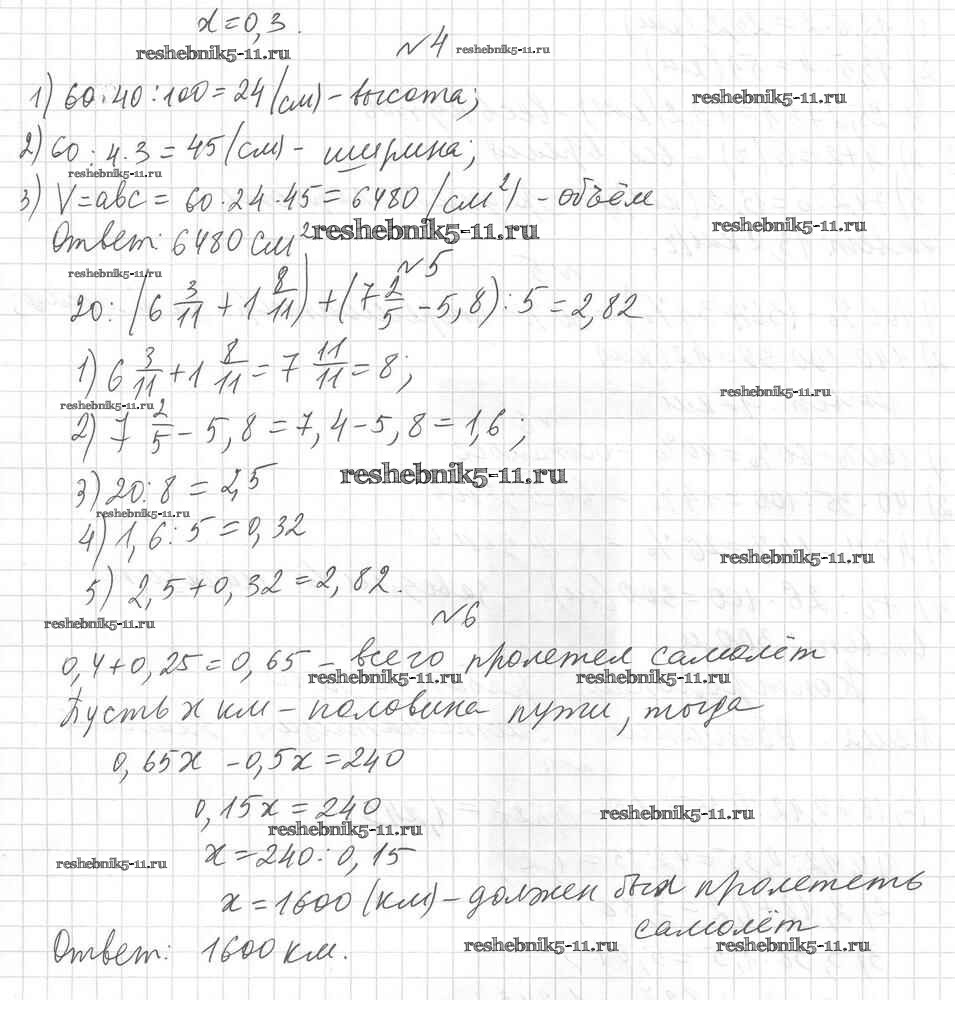 x = 0,3.
reshebnik5-11.ru
№4 reshebnik5-11.ru
1) 60·40:100=24(см) - высота;
reshebnik5-11.ru
2) 60:4·3=45(см) - ширина;
reshebnik5-11.ru
3) V=abc=60·24·45=6480(см²) - объём
Ответ: 6480 см²
reshebnik5-11.ru
reshebnik5-11.ru
reshebnik5-11.ru
№5
20:(6 3/11 + 1 8/11)+(7 2/5 - 5,8):5=2,82
1) 6 3/11 + 1 8/11 = 7 11/11 = 8;
reshebnik5-11.ru
reshebnik5-11.ru
2) 7 2/5 - 5,8 = 7,4 - 5,8 = 1,6;
reshebnik5-11.ru
3) 20:8 = 2,5
reshebnik5-11.ru
4) 1,6:5=0,32
reshebnik5-11.ru
5) 2,5+0,32=2,82.
reshebnik5-11.ru
№6
0,4+0,25=0,65 - всего пролетел самолёт
reshebnik5-11.ru
reshebnik5-11.ru
Пусть x км - половина пути, тогда
0,65x - 0,5x=240
0,15x=240
reshebnik5-11.ru
reshebnik5-11.ru
x=240:0,15
reshebnik5-11.ru
x=1600(км) - должен был пролететь
самолёт
Ответ: 1600 км.
reshebnik5-11.ru
reshebnik5-11.ru